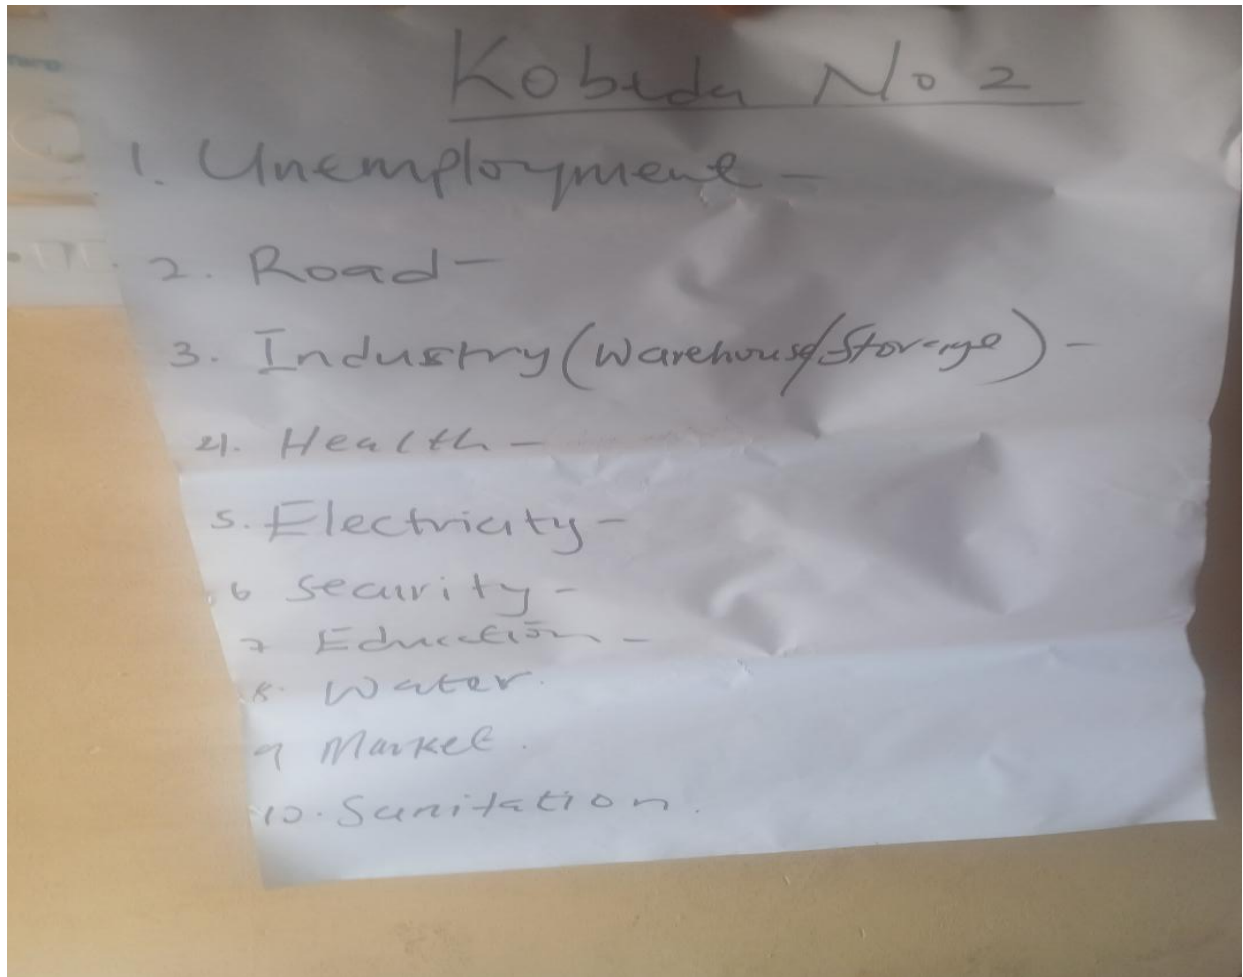 Kobeda No 2
1. Unemployment -
2. Road -
3. Industry (Warehouse/Storage) -
4. Health -
5. Electricity -
6 Security -
7 Education -
8. Water.
9 Market.
10. Sanitation.